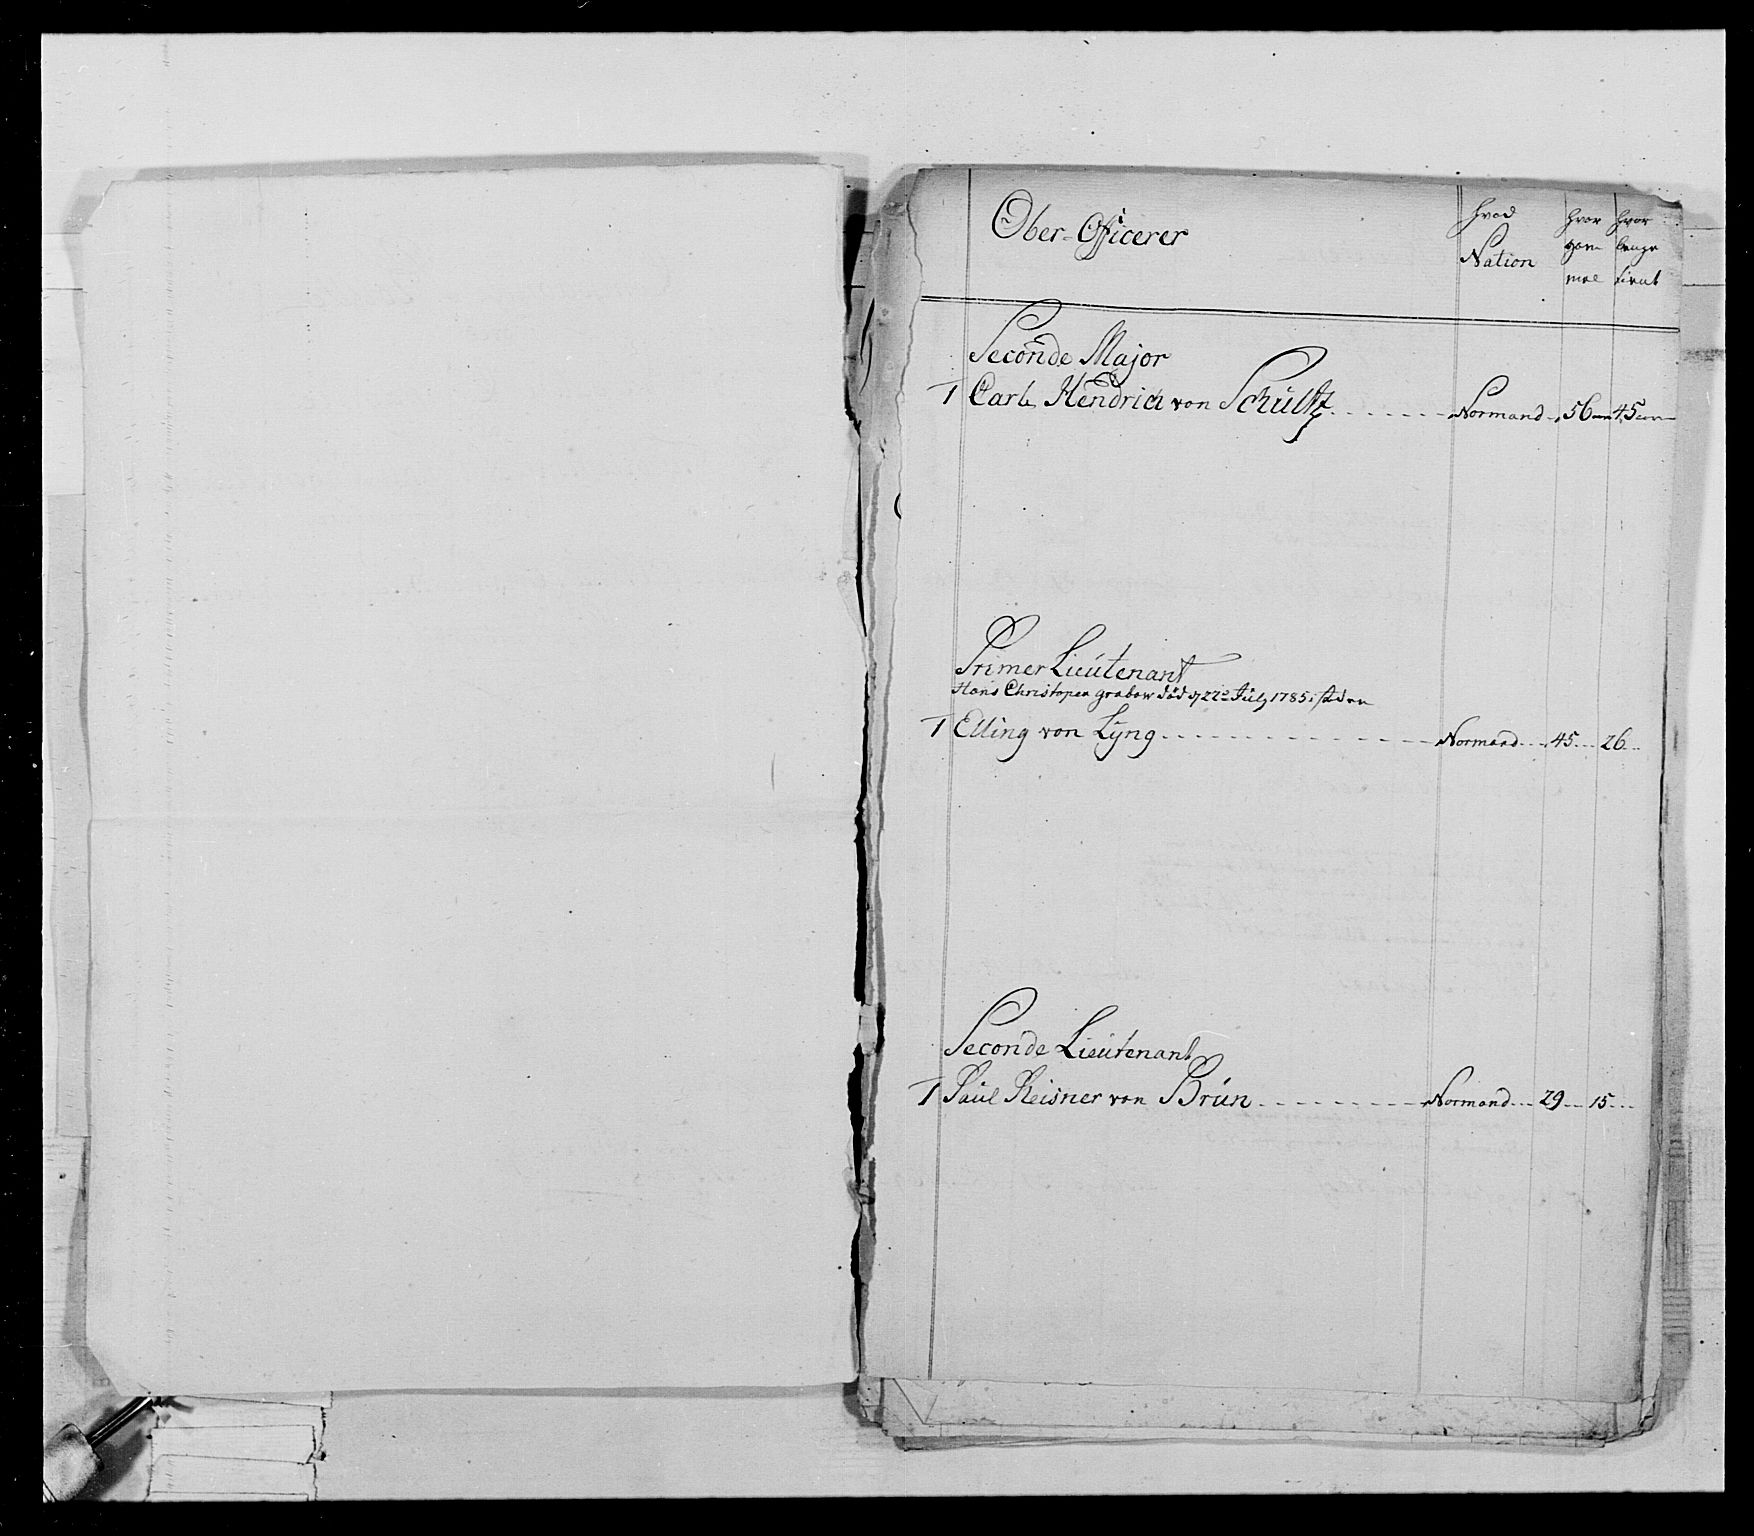 Ober-Officerer
hvad Nation
hvor gam mel
hvor lenge tient
Seconde Major
1 Carl Hendrich von Schultz Normand 56 45
Primer Lieutenant
Hans Christopher Grabow død d 22de July 1785
1 Elling von Lyng Normand 45 26
Seconde Lieutenant
1 Paul Reisner von Brün Normand 29 15